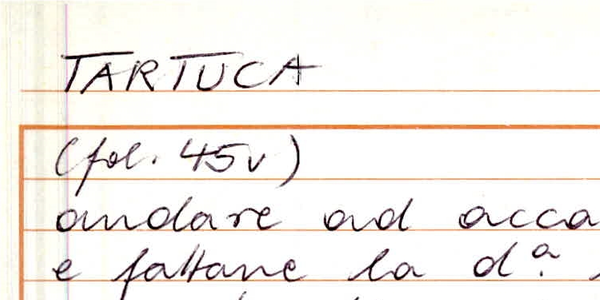 TARTUCA
(fol. 45v)
andare ad acca
e fattane la d.ª